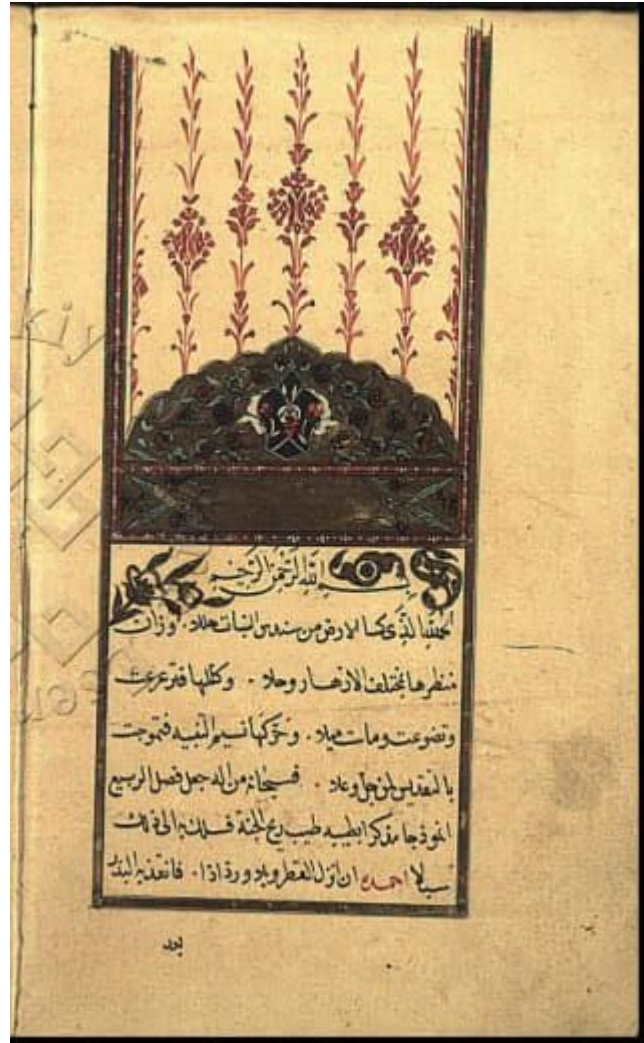 بسم الله الرحمن الرحيم
الحمد لله الذي كسا الارض من سندس النبات حللا . وزان
منظرها بمختلف الازهار وحلا . وكللها فترعرعت
وتضوعت ومات ميلا . وحركها نسيم فتموجت
بالتقديس لمن جل وعلا . فسبحانه من اله جعل فصل الربيع
انموذجا مذكرا بطيبه طيب ريح الجنة
سبلا احمده ان انزل القطر . فانعقد به البذر
بعد